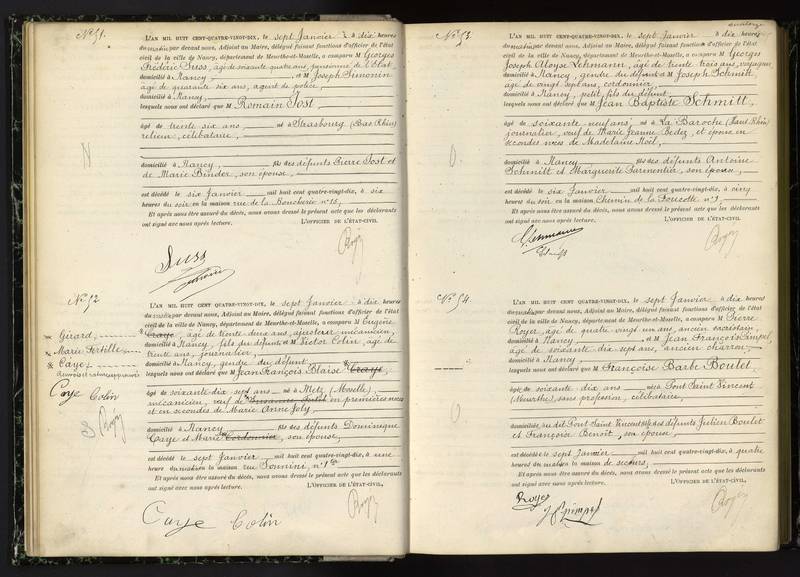 N° 51.
L'AN MIL HUIT CENT-QUATRE-VINGT-DIX, le sept Janvier à dix heures
du matin par devant nous, Adjoint au Maire, délégué faisant fonctions d'officier de l'état
civil de la ville de Nancy, département de Meurthe-et-Moselle, a comparu M Georges
Frédéric Suss, âgé de soixante quatre ans, pensionné de l'Etat,
domicilié à Nancy, et M Joseph Simonin
âgé de quarante six ans, agent de police,
domicilié à Nancy,
lesquels nous ont déclaré que M Romain Jost,
âgé de trente six ans né à Strasbourg (Bas Rhin)
relieur, célibataire,
N
domicilié à Nancy fils des défunts Pierre Jost et
de Marie Binder, son épouse,
est décédé le six Janvier mil huit cent quatre-vingt-dix, à six
heures du soir en la maison rue de la Boucherie n° 15,
Et après nous être assuré du décès, nous avons dressé le présent acte que les déclarants
ont signé avec nous après lecture. L'OFFICIER DE L'ÉTAT-CIVIL,
Suss
N° 52
L'AN MIL HUIT CENT QUATRE-VINGT-DIX, le sept Janvier à dix heures
du matin par devant nous, Adjoint au Maire, délégué faisant fonctions d'officier de l'état
civil de la ville de Nancy, département de Meurthe-et-Moselle, a comparu M Eugène
Caye, âgé de trente deux ans, ajusteur mécanicien,
domicilié à Nancy, fils du défunt et M Victor Colin, âgé de
trente ans, journalier,
domicilié à Nancy, gendre du défunt
lesquels nous ont déclaré que M Jean François Blaise Craye,
Girard,
Marie Fertille
Caye,
Caye Colin
âgé de soixante-dix sept ans né à Metz (Moselle),
mécanicien, veuf de en premières noces
et en secondes de Marie Anne Joly,
3
domicilié à Nancy fils des défunts Dominique
Caye et Marie Cordonnier, son épouse,
est décédé le sept Janvier mil huit cent quatre-vingt-dix, à une
heure du matin en la maison rue Sonnini, n° 1
Et après nous être assuré du décès, nous avons dressé le présent acte que les déclarants
ont signé avec nous après lecture. L'OFFICIER DE L'ÉTAT-CIVIL,
Caye Colin
N° 53.
L'AN MIL HUIT CENT-QUATRE-VINGT-DIX, le sept Janvier à dix heures
du matin par devant nous, Adjoint au Maire, délégué faisant fonctions d'officier de l'état
civil de la ville de Nancy, département de Meurthe-et-Moselle, a comparu M Georges
Joseph Aloyse Lehmann, âgé de trente trois ans, voyageur,
domicilié à Nancy, gendre du défunt et M Joseph Schmitt
âgé de vingt sept ans, cordonnier,
domicilié à Nancy, petit fils du défunt
lesquels nous ont déclaré que M Jean Baptiste Schmitt,
âgé de soixante neuf ans né à La Baroche (Haut Rhin)
journalier, veuf de Marie Jeanne Bedez, et époux en
secondes noces de Madelaine Noël,
domicilié à Nancy fils des défunts Antoine
Schmitt et Marguerite Parmentier, son épouse,
est décédé le six Janvier mil huit cent quatre-vingt-dix, à cinq
heures du soir en la maison Chemin de la Foucotte n° 9,
Et après nous être assuré du décès, nous avons dressé le présent acte que les déclarants
ont signé avec nous après lecture. L'OFFICIER DE L'ÉTAT-CIVIL,
N° 54.
L'AN MIL HUIT CENT-QUATRE-VINGT-DIX, le sept Janvier à dix heures
du matin par devant nous, Adjoint au Maire, délégué faisant fonctions d'officier de l'état
civil de la ville de Nancy, département de Meurthe-et-Moselle, a comparu M Pierre
Royer, âgé de quatre vingt un ans, ancien
domicilié à Nancy et M Jean François
âgé de soixante dix sept ans, ancien charron,
domicilié à Nancy
lesquels nous ont déclaré que M Françoise Barbe Boulet,
âgée de soixante dix ans née à Pont Saint Vincent
(Meurthe) sans profession, célibataire,
domiciliée au dit Pont Saint Vincent fille des défunts Julien Boulet
et Françoise Benoit, son épouse,
est décédée le sept Janvier mil huit cent quatre-vingt-dix, à quatre
heures du matin en la maison de secours,
Et après nous être assuré du décès, nous avons dressé le présent acte que les déclarants
ont signé avec nous après lecture. L'OFFICIER DE L'ÉTAT-CIVIL,
Royer